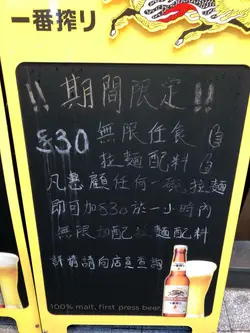 一番搾り
!! 期間限定 !!
$30 無限任食
拉麵配料
凡惠顧任何一碗拉麵
即可加$30於一小時內
無限加配拉麵配料
詳情請向店員查詢
100% malt, first press beer